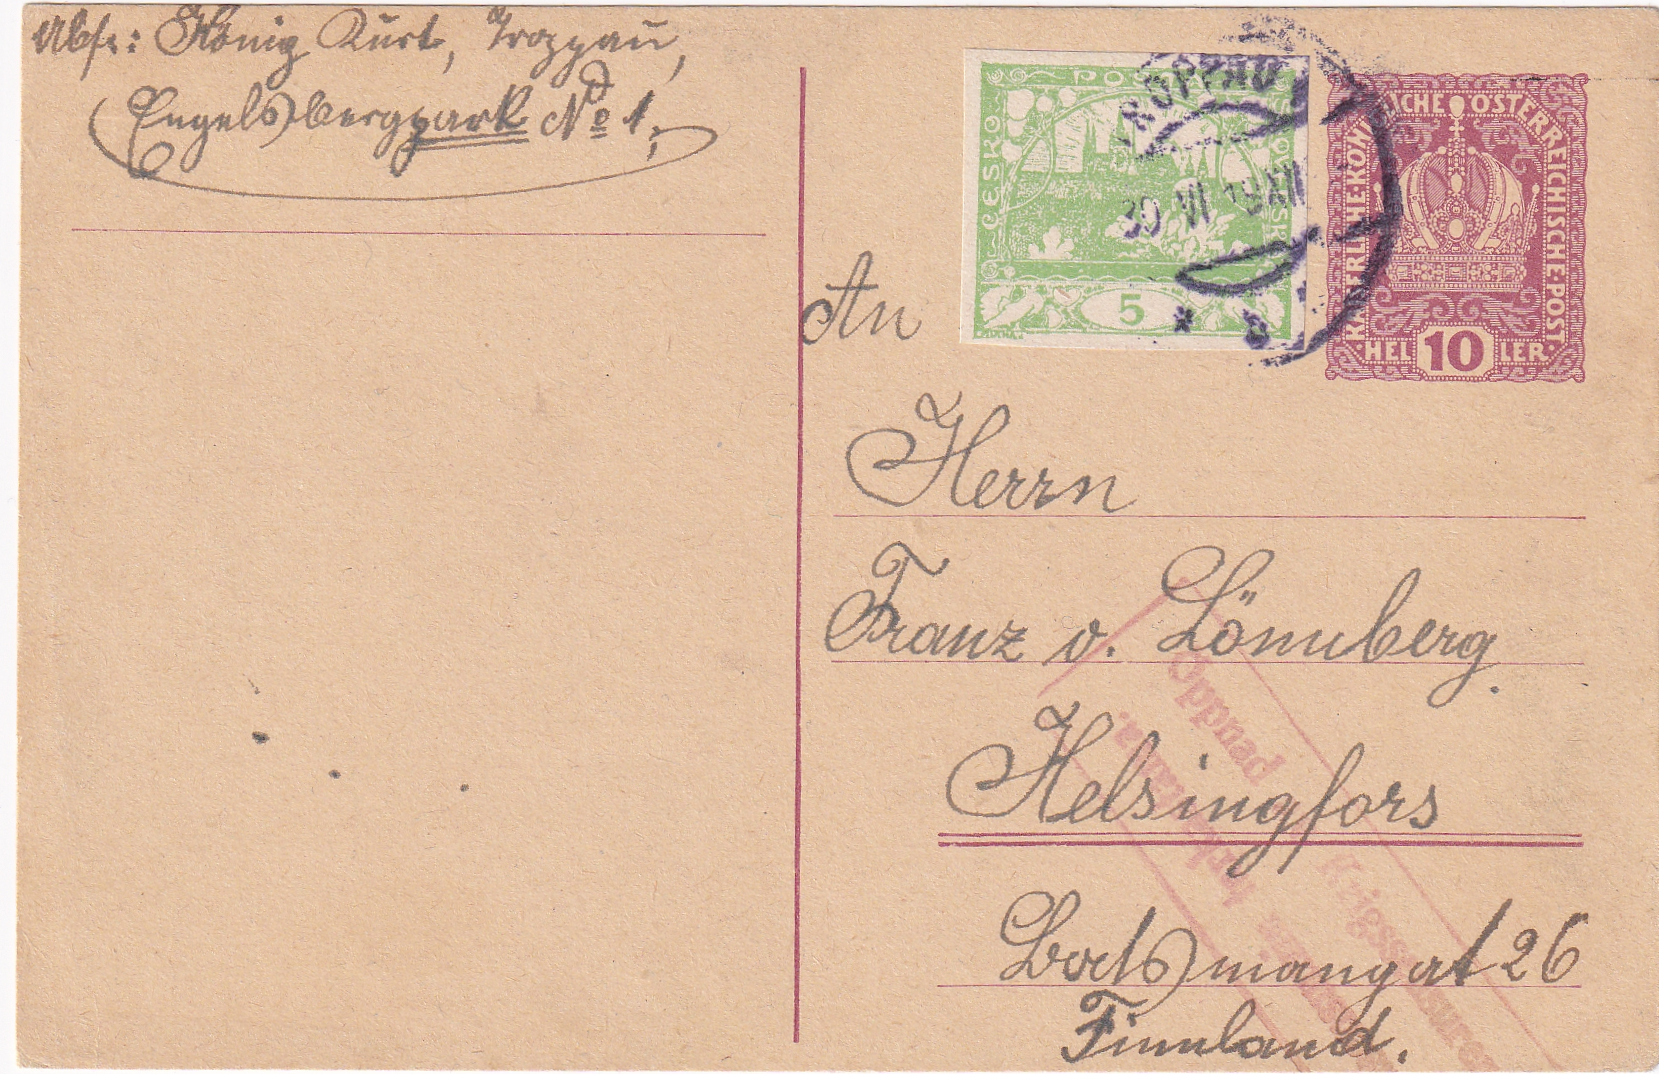 Abs.: König Kurt, Troppau,
Engelsbergpark No 1.
POŠTA
ČESKO
SLOVENSKÁ
5
TROPPAU
30 VI 19 XII
KAISERLICHE·KÖNIGLICHE ÖSTERREICHISCHE·POST·
·HEL 10 LER·
An
Herrn
Franz v. Lönnberg.
Helsingfors
Botsmangat 26
Finnland.
Öppnad Krigscensuren